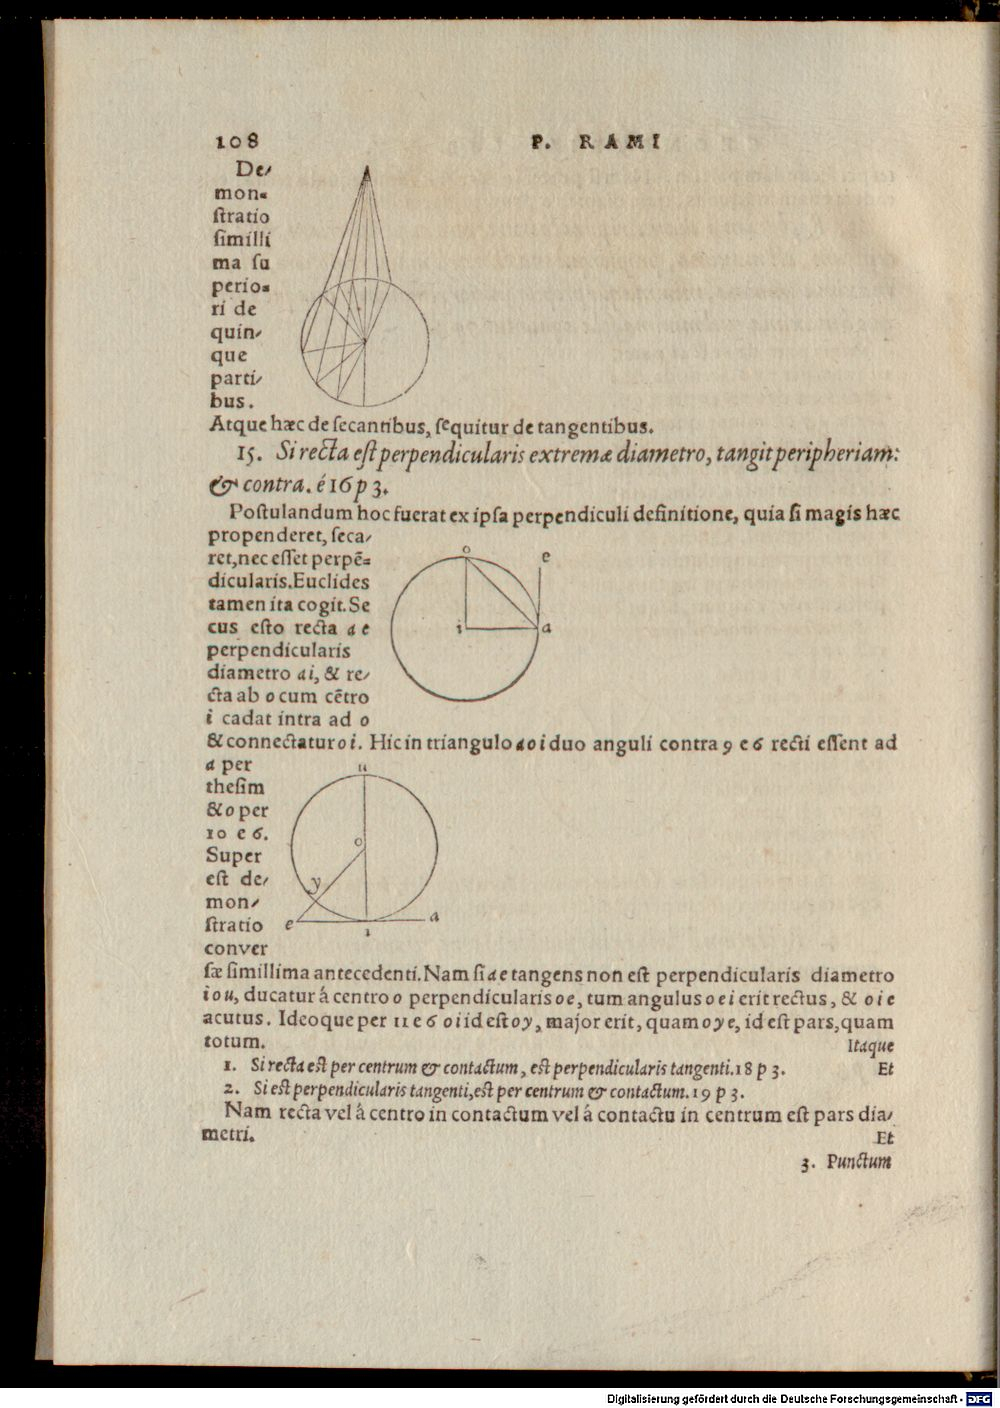 108 P. RAMI
De⸗
mon⸗
ſtratio
ſimilli
ma ſu
perio⸗
ri de
quin⸗
que
parti⸗
bus.
Atque hæc de ſecantibus, ſequitur de tangentibus.
15. Si recta eſt perpendicularis extremæ diametro, tangit peripheriam:
& contra. é 16 p 3.
Poſtulandum hoc fuerat ex ipſa perpendiculi definitione, quia ſi magis hæc
propenderet, ſeca⸗
ret, nec eſſet perpē⸗
dicularis. Euclides
tamen ita cogit. Se
cus eſto recta a e
perpendicularis
diametro ai, & re⸗
cta ab o cum cētro
i cadat intra ad o
& connectatur o i. Hic in triangulo a o i duo anguli contra 9 e 6 recti eſſent ad
o
e
i
a
a per
theſim
& o per
10 e 6.
Super
eſt de⸗
mon⸗
ſtratio
conver
u
o
y
e
a
ı
ſæ ſimillima antecedenti. Nam ſi a e tangens non eſt perpendicularis diametro
i o u, ducatur á centro o perpendicularis o e, tum angulus o e i erit rectus, & o i e
acutus. Ideoque per 11 e 6 oi id eſt o y, major erit, quam o y e, id eſt pars, quam
totum.
Itaque
1. Si recta eſt per centrum & contactum, eſt perpendicularis tangenti. 18 p 3. Et
2. Si eſt perpendicularis tangenti, eſt per centrum & contactum. 19 p 3.
Nam recta vel á centro in contactum vel á contactu in centrum eſt pars dia⸗
metri.
Et
3. Punctum
Digitalisierung gefördert durch die Deutsche Forschungsgemeinschaft - DFG